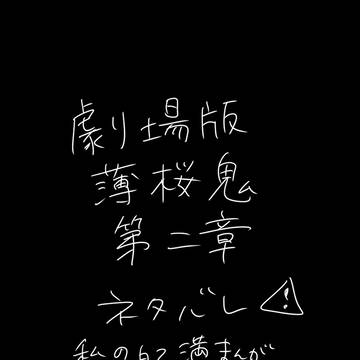 劇場版
薄桜鬼
第二章
ネタバレ
私の自己満まんが